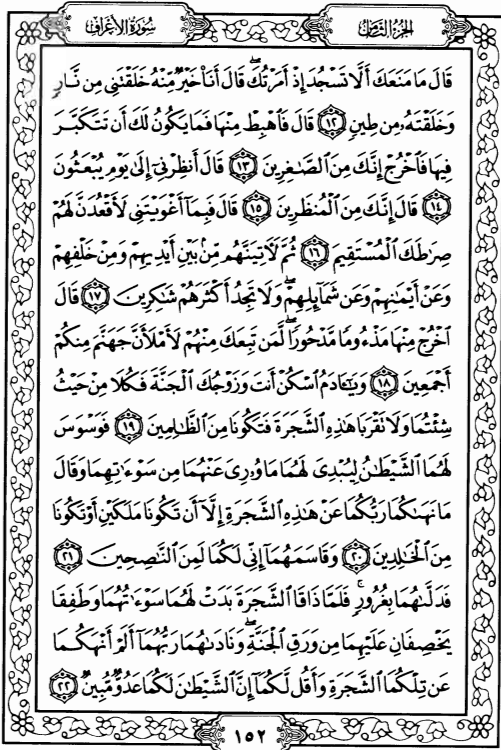 سورة الأعراف الجزء الثامن
قَالَ مَا مَنَعَكَ أَلَّا تَسْجُدَ إِذْ أَمَرْتُكَ ۖ قَالَ أَنَا۠ خَيْرٌ مِّنْهُ خَلَقْتَنِى مِن نَّارٍ
وَخَلَقْتَهُۥ مِن طِينٍ ١٢ قَالَ فَٱهْبِطْ مِنْهَا فَمَا يَكُونُ لَكَ أَن تَتَكَبَّرَ
فِيهَا فَٱخْرُجْ إِنَّكَ مِنَ ٱلصَّـٰغِرِينَ ١٣ قَالَ أَنظِرْنِىٓ إِلَىٰ يَوْمِ يُبْعَثُونَ
١٤ قَالَ إِنَّكَ مِنَ ٱلْمُنظَرِينَ ١٥ قَالَ فَبِمَآ أَغْوَيْتَنِى لَأَقْعُدَنَّ لَهُمْ
صِرَٰطَكَ ٱلْمُسْتَقِيمَ ١٦ ثُمَّ لَـَٔاتِيَنَّهُم مِّنۢ بَيْنِ أَيْدِيهِمْ وَمِنْ خَلْفِهِمْ
وَعَنْ أَيْمَـٰنِهِمْ وَعَن شَمَآئِلِهِمْ ۖ وَلَا تَجِدُ أَكْثَرَهُمْ شَـٰكِرِينَ ١٧ قَالَ
ٱخْرُجْ مِنْهَا مَذْءُومًا مَّدْحُورًا ۖ لَّمَن تَبِعَكَ مِنْهُمْ لَأَمْلَأَنَّ جَهَنَّمَ مِنكُمْ
أَجْمَعِينَ ١٨ وَيَـٰٓـَٔادَمُ ٱسْكُنْ أَنتَ وَزَوْجُكَ ٱلْجَنَّةَ فَكُلَا مِنْ حَيْثُ
شِئْتُمَا وَلَا تَقْرَبَا هَـٰذِهِ ٱلشَّجَرَةَ فَتَكُونَا مِنَ ٱلظَّـٰلِمِينَ ١٩ فَوَسْوَسَ
لَهُمَا ٱلشَّيْطَـٰنُ لِيُبْدِىَ لَهُمَا مَا وُۥرِىَ عَنْهُمَا مِن سَوْءَٰتِهِمَا وَقَالَ
مَا نَهَىٰكُمَا رَبُّكُمَا عَنْ هَـٰذِهِ ٱلشَّجَرَةِ إِلَّآ أَن تَكُونَا مَلَكَيْنِ أَوْ تَكُونَا
مِنَ ٱلْخَـٰلِدِينَ ٢٠ وَقَاسَمَهُمَآ إِنِّى لَكُمَا لَمِنَ ٱلنَّـٰصِحِينَ ٢١
فَدَلَّىٰهُمَا بِغُرُورٍ ۚ فَلَمَّا ذَاقَا ٱلشَّجَرَةَ بَدَتْ لَهُمَا سَوْءَٰتُهُمَا وَطَفِقَا
يَخْصِفَانِ عَلَيْهِمَا مِن وَرَقِ ٱلْجَنَّةِ ۖ وَنَادَىٰهُمَا رَبُّهُمَآ أَلَمْ أَنْهَكُمَا
عَن تِلْكُمَا ٱلشَّجَرَةِ وَأَقُل لَّكُمَآ إِنَّ ٱلشَّيْطَـٰنَ لَكُمَا عَدُوٌّ مُّبِينٌ ٢٢
١٥٢